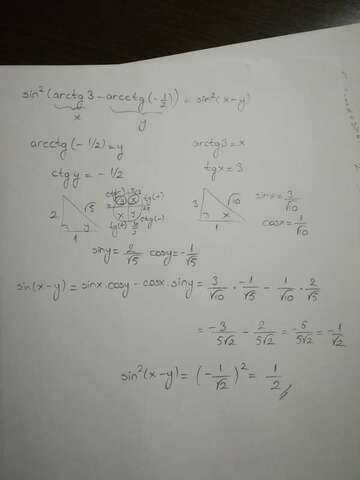 sin²(arctg3 - arcctg(-1/2)) = sin²(x-y)
x y
arcctg(-1/2) = y
ctgy = -1/2
arctg3 = x
tgx = 3
2 √5 y 1
x y
3 √10 x 1
sinx = 3/√10
cosx = 1/√10
siny = 2/√5 cosy = -1/√5
sin(x-y) = sinx·cosy - cosx·siny = 3/√10 · -1/√5 - 1/√10 · 2/√5
= -3/5√2 - 2/5√2 = -5/5√2 = -1/√2
sin²(x-y) = (-1/√2)² = 1/2